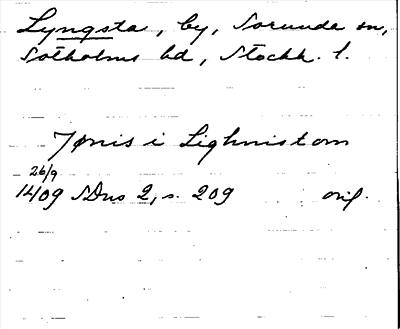 Lyngsta, by, Sorunda sn,
Sotholms hd, Stockh. l.
Jønis i Lighnistom
26/9
1409 SDns 2, s. 209 orig.